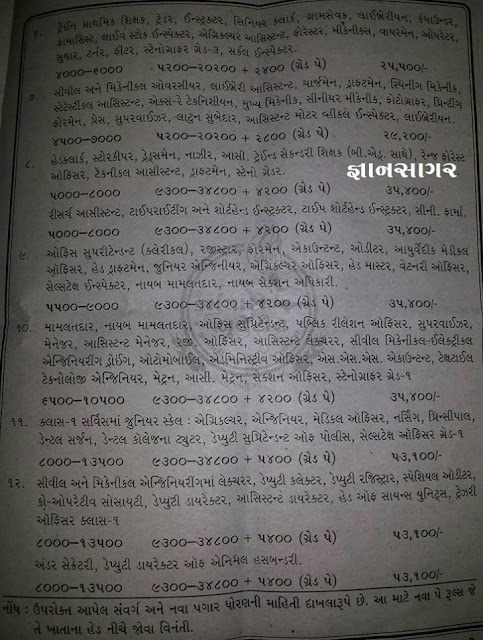 ૬. ટ્રેઈન પ્રાથમિક શિક્ષક, ટ્રેડર, ઈન્સ્ટ્રક્ટર, સિનિયર ક્લાર્ક, ગ્રામસેવક, લાઈબ્રેરીયન, કંપાઉન્ડર,
ફાર્માસિસ્ટ, લાઈવ સ્ટોક ઈન્સ્પેક્ટર, એગ્રિકલ્ચર આસિસ્ટન્ટ, ફોરેસ્ટર, મીકેનીક્સ, વાયરમેન, ઓપરેટર,
સુથાર, ટર્નર, ફીટર, સ્ટેનોગ્રાફર ગ્રેડ-૩, સર્કલ ઈન્સ્પેક્ટર.
૪૦૦૦-૬૦૦૦ ૫૨૦૦-૨૦૨૦૦ + ૨૪૦૦ (ગ્રેડ પે) ૨૫,૫૦૦/-
૭. સીવીલ અને મિકેનીકલ ઓવરસીયર, લાઈબ્રેરી આસિસ્ટન્ટ, ચાર્જમેન, ડ્રાફ્ટમેન, સ્પિનીંગ મિકેનીક,
સ્ટેટેસ્ટીકલ આસિસ્ટન્ટ, એક્સ-રે ટેકનિશીયન, મુખ્ય મિકેનીક, સીનીયર મીકેનીક, ફોટોગ્રાફર, પ્રિન્ટીંગ
ફોરમેન, પ્રેસ, સુપરવાઈઝર-લાટુન સુબેદાર, આસિસ્ટન્ટ મોટર વ્હીકલ ઈન્સ્પેક્ટર, લાઈબ્રેરીયન.
૪૫૦૦-૭૦૦૦ ૫૨૦૦-૨૦૨૦૦ + ૨૮૦૦ (ગ્રેડ પે) ૨૯,૨૦૦/-
૮. હેડક્લાર્ક, સ્ટોરકીપર, ડ્રેડ્સમેન, નાઝીર, આસી. ટ્રેઈન્ડ સેકન્ડરી શિક્ષક (બી.એડ્. સાથે), રેન્જ ફોરેસ્ટ
ઓફિસર, ટેકનીકલ આસીસ્ટન્ટ, ડ્રાફ્ટમેન, સ્ટેનો ગ્રેડર.
જ્ઞાનસાગર
૫૦૦૦-૮૦૦૦ ૯૩૦૦-૩૪૮૦૦ + ૪૨૦૦ (ગ્રેડ પે) ૩૫,૪૦૦/-
રીસર્ચ આસીસ્ટન્ટ, ટાઈપરાઈટીંગ અને શોર્ટહેન્ડ ઈન્સ્ટ્રક્ટર, ટાઈપ શોર્ટહેન્ડ ઈન્સ્ટ્રક્ટર, સીની. ફાર્મા.
૫૦૦૦-૮૦૦૦ ૯૩૦૦-૩૪૮૦૦ + ૪૨૦૦ (ગ્રેડ પે) ૩૫,૪૦૦/-
૯. ઓફિસ સુપરીટેન્ડન્ટ (ક્લેરીકલ), રજીસ્ટ્રાર, ફોરમેન, એકાઉન્ટન્ટ, ઓડીટર, આયુર્વેદીક મેડીકલ
ઓફિસર, હેડ ડ્રાફ્ટમેન, જુનિયર એન્જિનીયર, એગ્રિકલ્ચર ઓફિસર, હેડ માસ્ટર, વેટનરી ઓફિસર,
સેલ્સટેક્ષ ઈન્સ્પેક્ટર, નાયબ મામલતદાર, નાયબ સેક્શન અધિકારી.
૫૫૦૦-૯૦૦૦ ૯૩૦૦-૩૪૮૦૦ + ૪૨૦૦ (ગ્રેડ પે) ૩૫,૪૦૦/-
૧૦. મામલતદાર, નાયબ મામલતદાર, ઓફિસ સુપ્રિટેન્ડન્ટ, પબ્લિક રીલેશન ઓફિસર, સુપરવાઈઝર,
મેનેજર, આસિસ્ટન્ટ મેનેજર, રજી. ઓફિસર, આસિસ્ટન્ટ લેક્ચરર, સીવીલ મિકેનીકલ-ઈલેક્ટ્રીકલ
એન્જિનિયરીંગ ડ્રોઈંગ, ઓટોમોબાઈલ, એડમિનિસ્ટ્રીવ ઓફિસર, એસ.એસ.એસ. એકાઉન્ટ, ટેક્ષટાઈલ
ટેકનોલોજી એન્જિનિયર, મેટ્રન, આસી. મેટ્રન, સેક્શન ઓફિસર, સ્ટેનોગ્રાફર ગ્રેડ-૧
૬૫૦૦-૧૦૫૦૦ ૯૩૦૦-૩૪૮૦૦ + ૪૨૦૦ (ગ્રેડ પે) ૩૫,૪૦૦/-
૧૧. ક્લાસ-૧ સર્વિસમાં જુનિયર સ્કેલ : એગ્રિકલ્ચર, એન્જિનિયર, મેડિકલ ઓફિસર, નર્સિંગ, પ્રિન્સીપાલ,
ડેન્ટલ સર્જન, ડેન્ટલ કોલેજના ટ્યુટર, ડેપ્યુટી સુપ્રિટેન્ડન્ટ ઓફ પોલીસ, સેલ્સટેક્ષ ઓફિસર ગ્રેડ-૧
૮૦૦૦-૧૩૫૦૦ ૯૩૦૦-૩૪૮૦૦ + ૫૪૦૦ (ગ્રેડ પે) ૫૩,૧૦૦/-
૧૨. સીવીલ અને મિકેનીકલ એન્જિનિયરીંગમાં લેક્ચરર, ડેપ્યુટી કલેક્ટર, ડેપ્યુટી રજિસ્ટ્રાર, સ્પેશિયલ ઓડીટર,
કો-ઓપરેટીવ સોસાયટી, ડેપ્યુટી ડાયરેક્ટર, આસિસ્ટન્ટ ડાયરેક્ટર, હેડ ઓફ સાયન્સ યુનિટ્સ, ટ્રેઝરી
ઓફિસર ક્લાસ-૧
૮૦૦૦-૧૩૫૦૦ ૯૩૦૦-૩૪૮૦૦ + ૫૪૦૦ (ગ્રેડ પે) ૫૩,૧૦૦/-
અંડર સેક્રેટરી, ડેપ્યુટી ડાયરેક્ટર ઓફ એનિમલ હસબન્ડરી.
૮૦૦૦-૧૩૫૦૦ ૯૩૦૦-૩૪૮૦૦ + ૫૪૦૦ (ગ્રેડ પે) ૫૩,૧૦૦/-
નોંધ : ઉપરોક્ત આપેલ સંવર્ગ અને નવા પગાર ધોરણની માહિતી દાખલારૂપે છે. આ માટે નવા પે રૂલ્સ જે
તે ખાતાના હેડ નીચે જોવા વિનંતી.